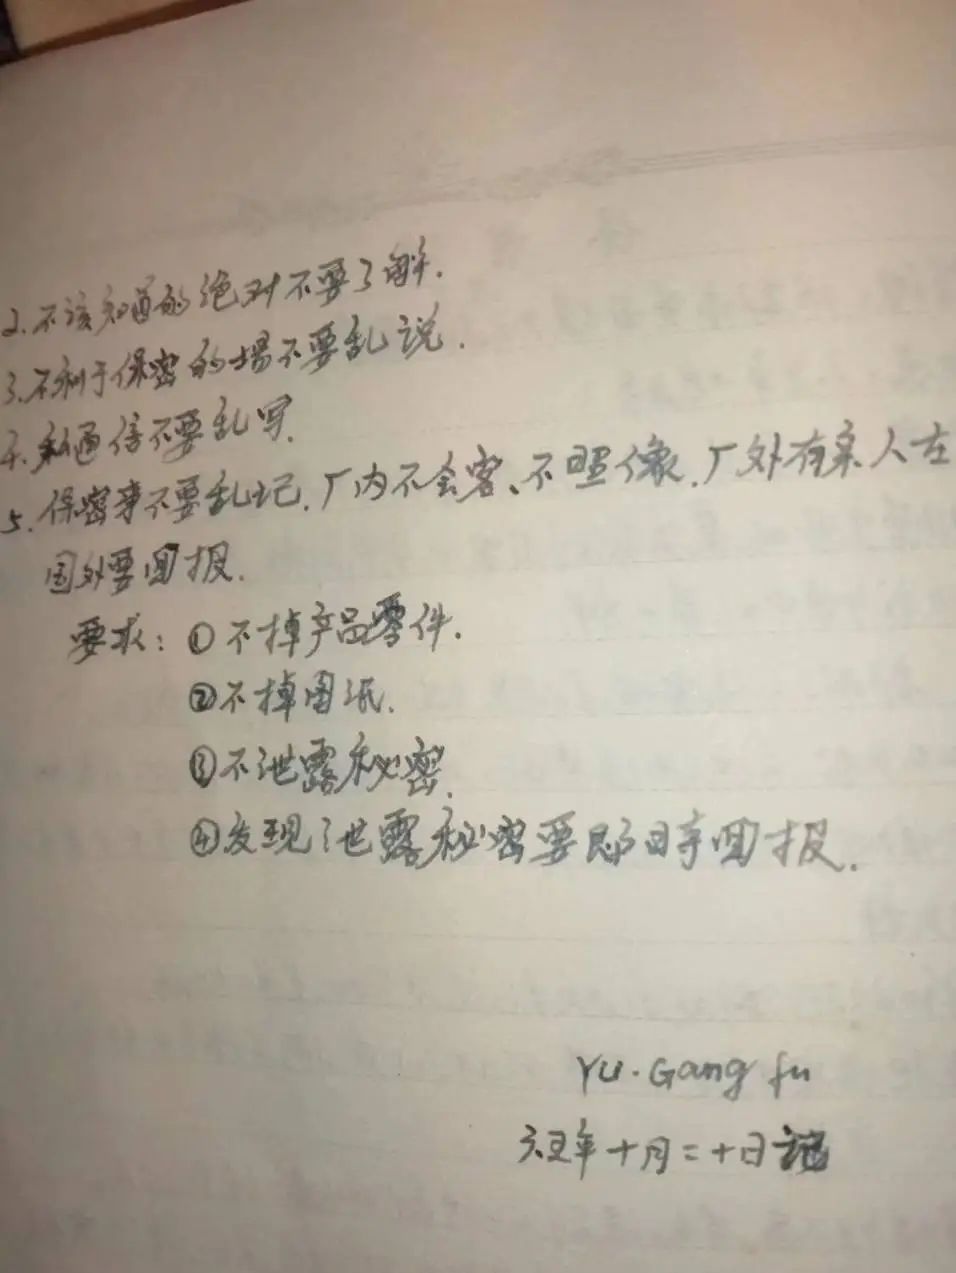 2.不该知道的绝对不要了解.
3.不利于保密的场不要乱说.
4.私通信不要乱写.
5.保密事不要乱记.厂内不会客、不照像.厂外有亲人在
国外要回报.
要求:①不掉产品零件.
②不掉图纸.
③不泄露秘密.
④发现泄露秘密要即时回报.
YU·Gang fu
六五年十月二十日记